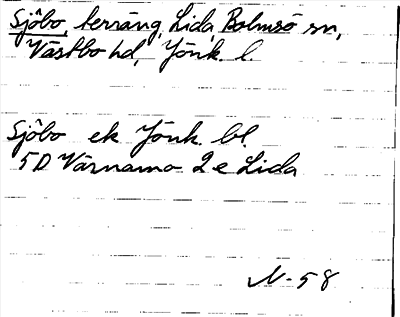 Sjöbo, terräng, Lida, Bolmsö sn,
Västbo hd, Jönk. l.
Sjöbo ek Jönk. bl.
5D Värnamo 2e Lida
N-58